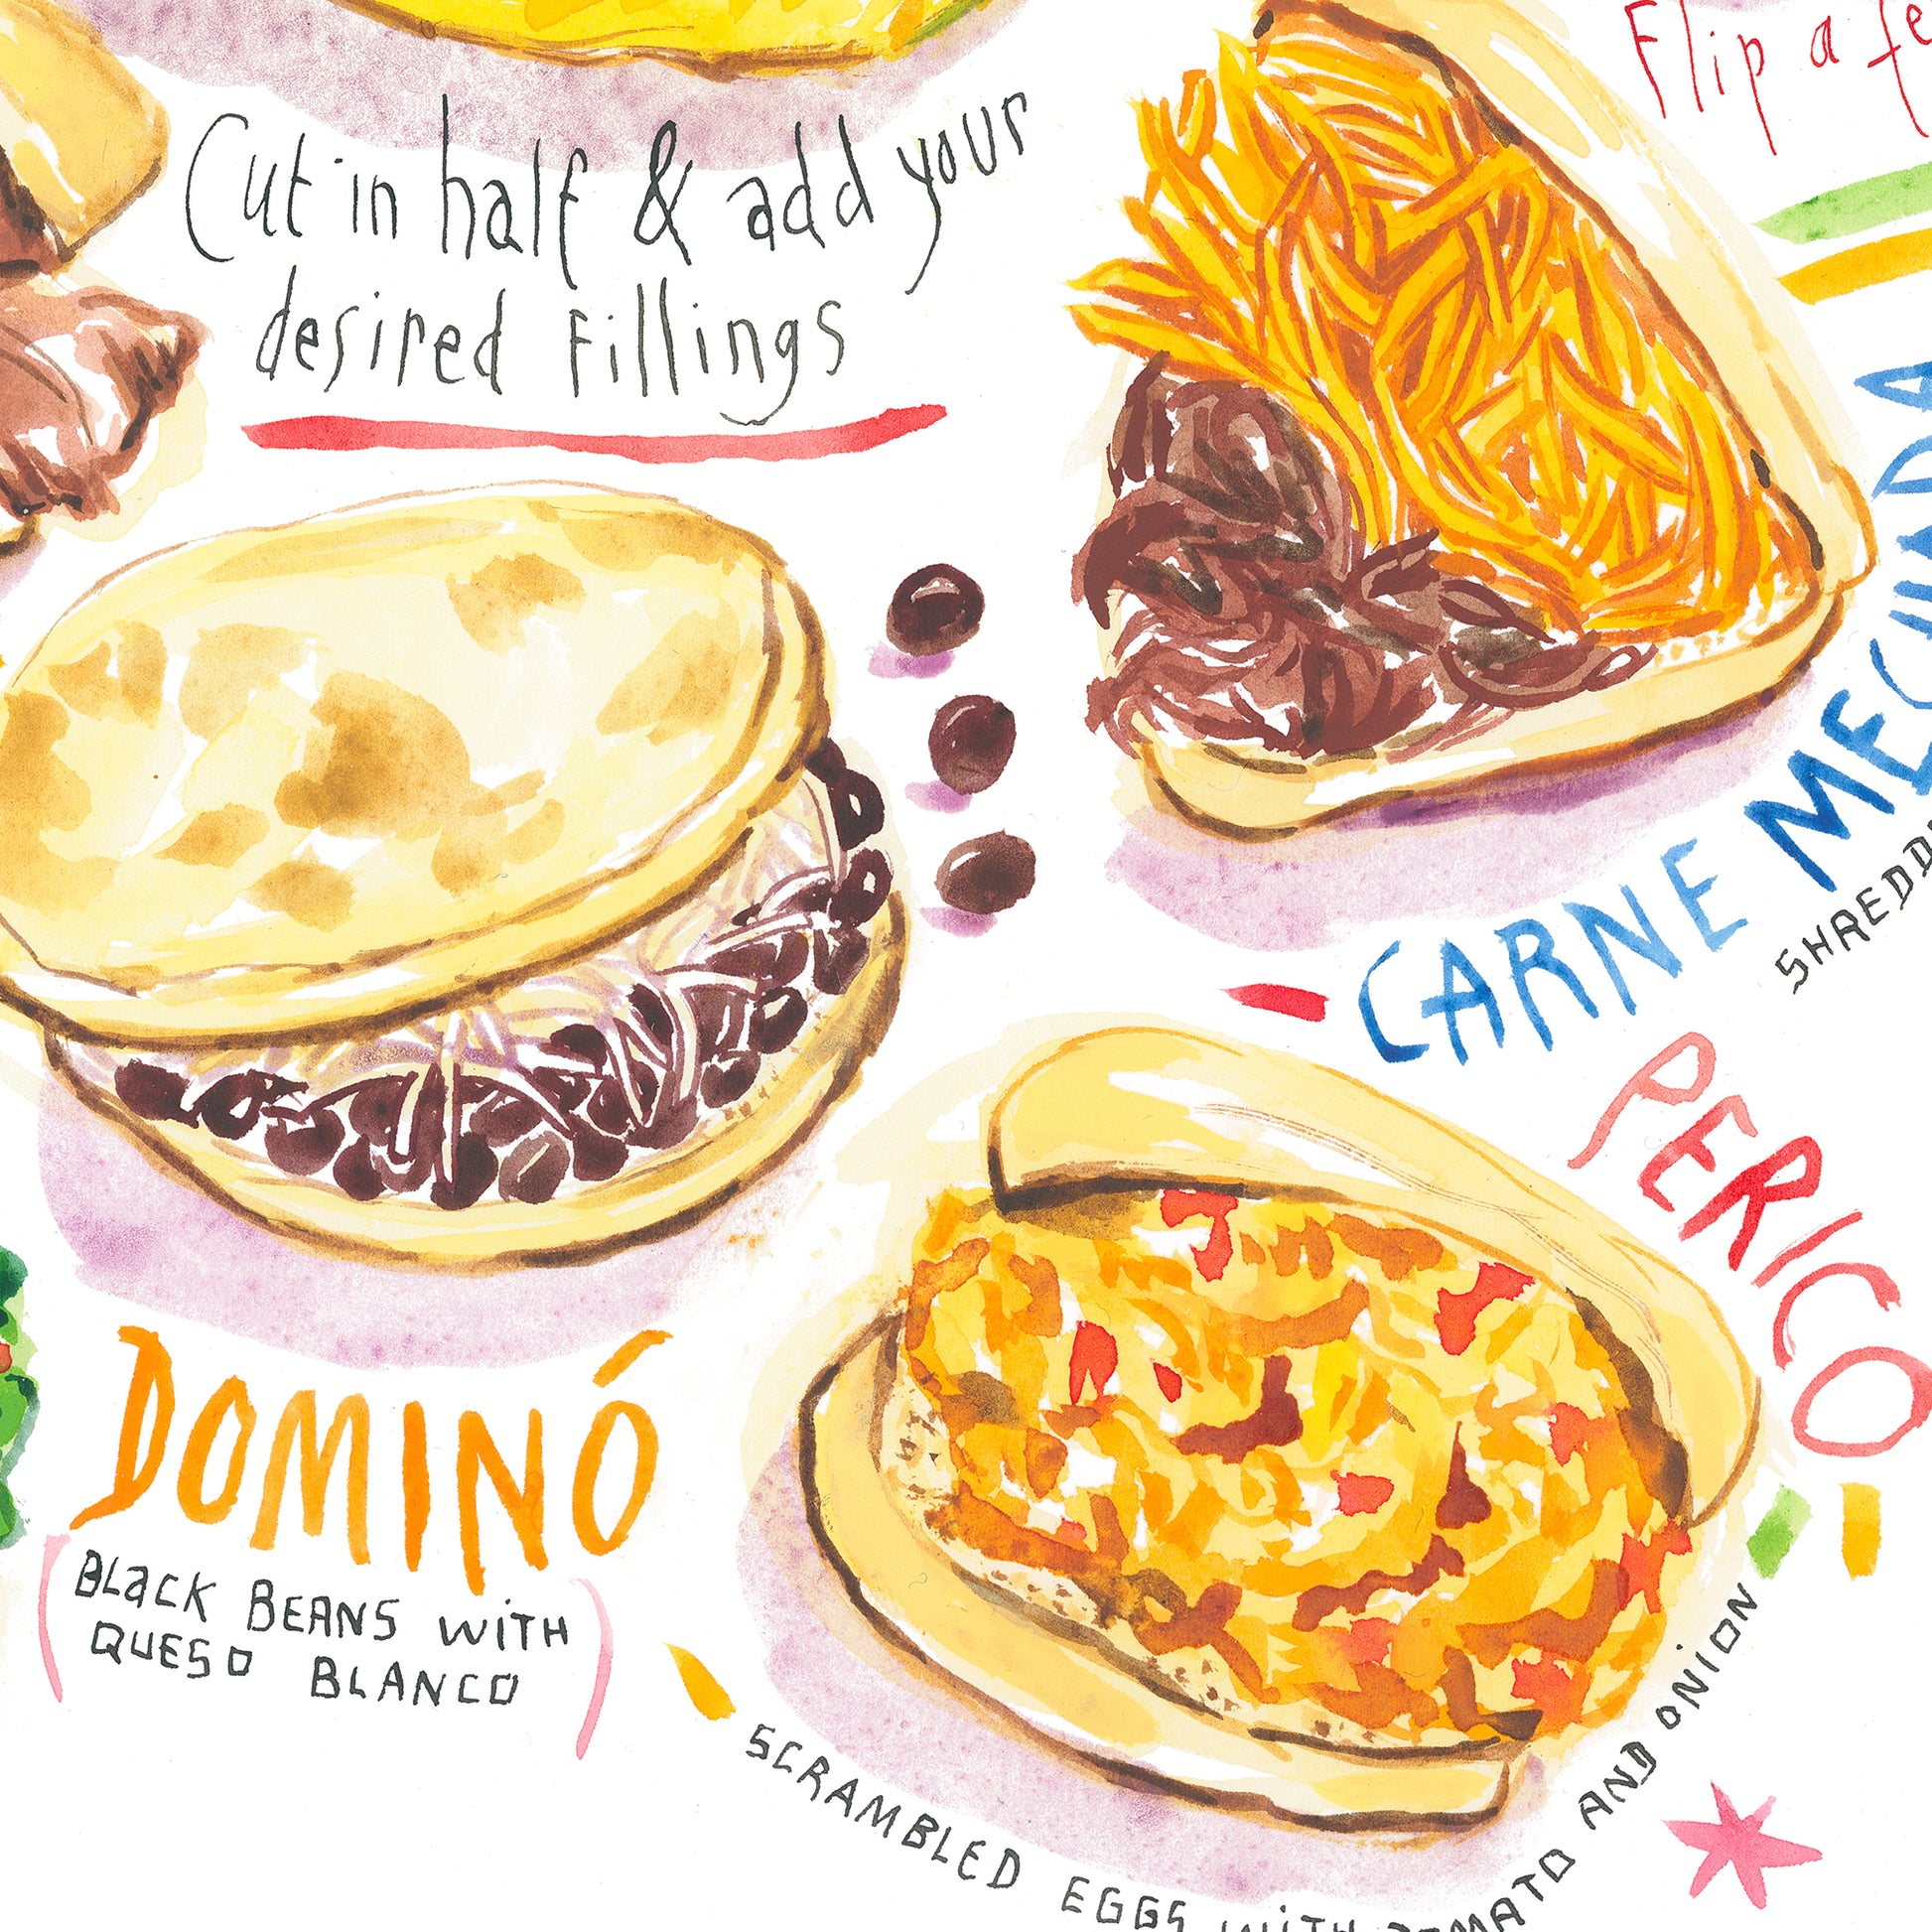 Flip a
Cut in half & add your
desired fillings
CARNE MECHADA
PERICO
DOMINÓ
(BLACK BEANS WITH
QUESO BLANCO)
SCRAMBLED EGGS WITH TOMATO AND ONION